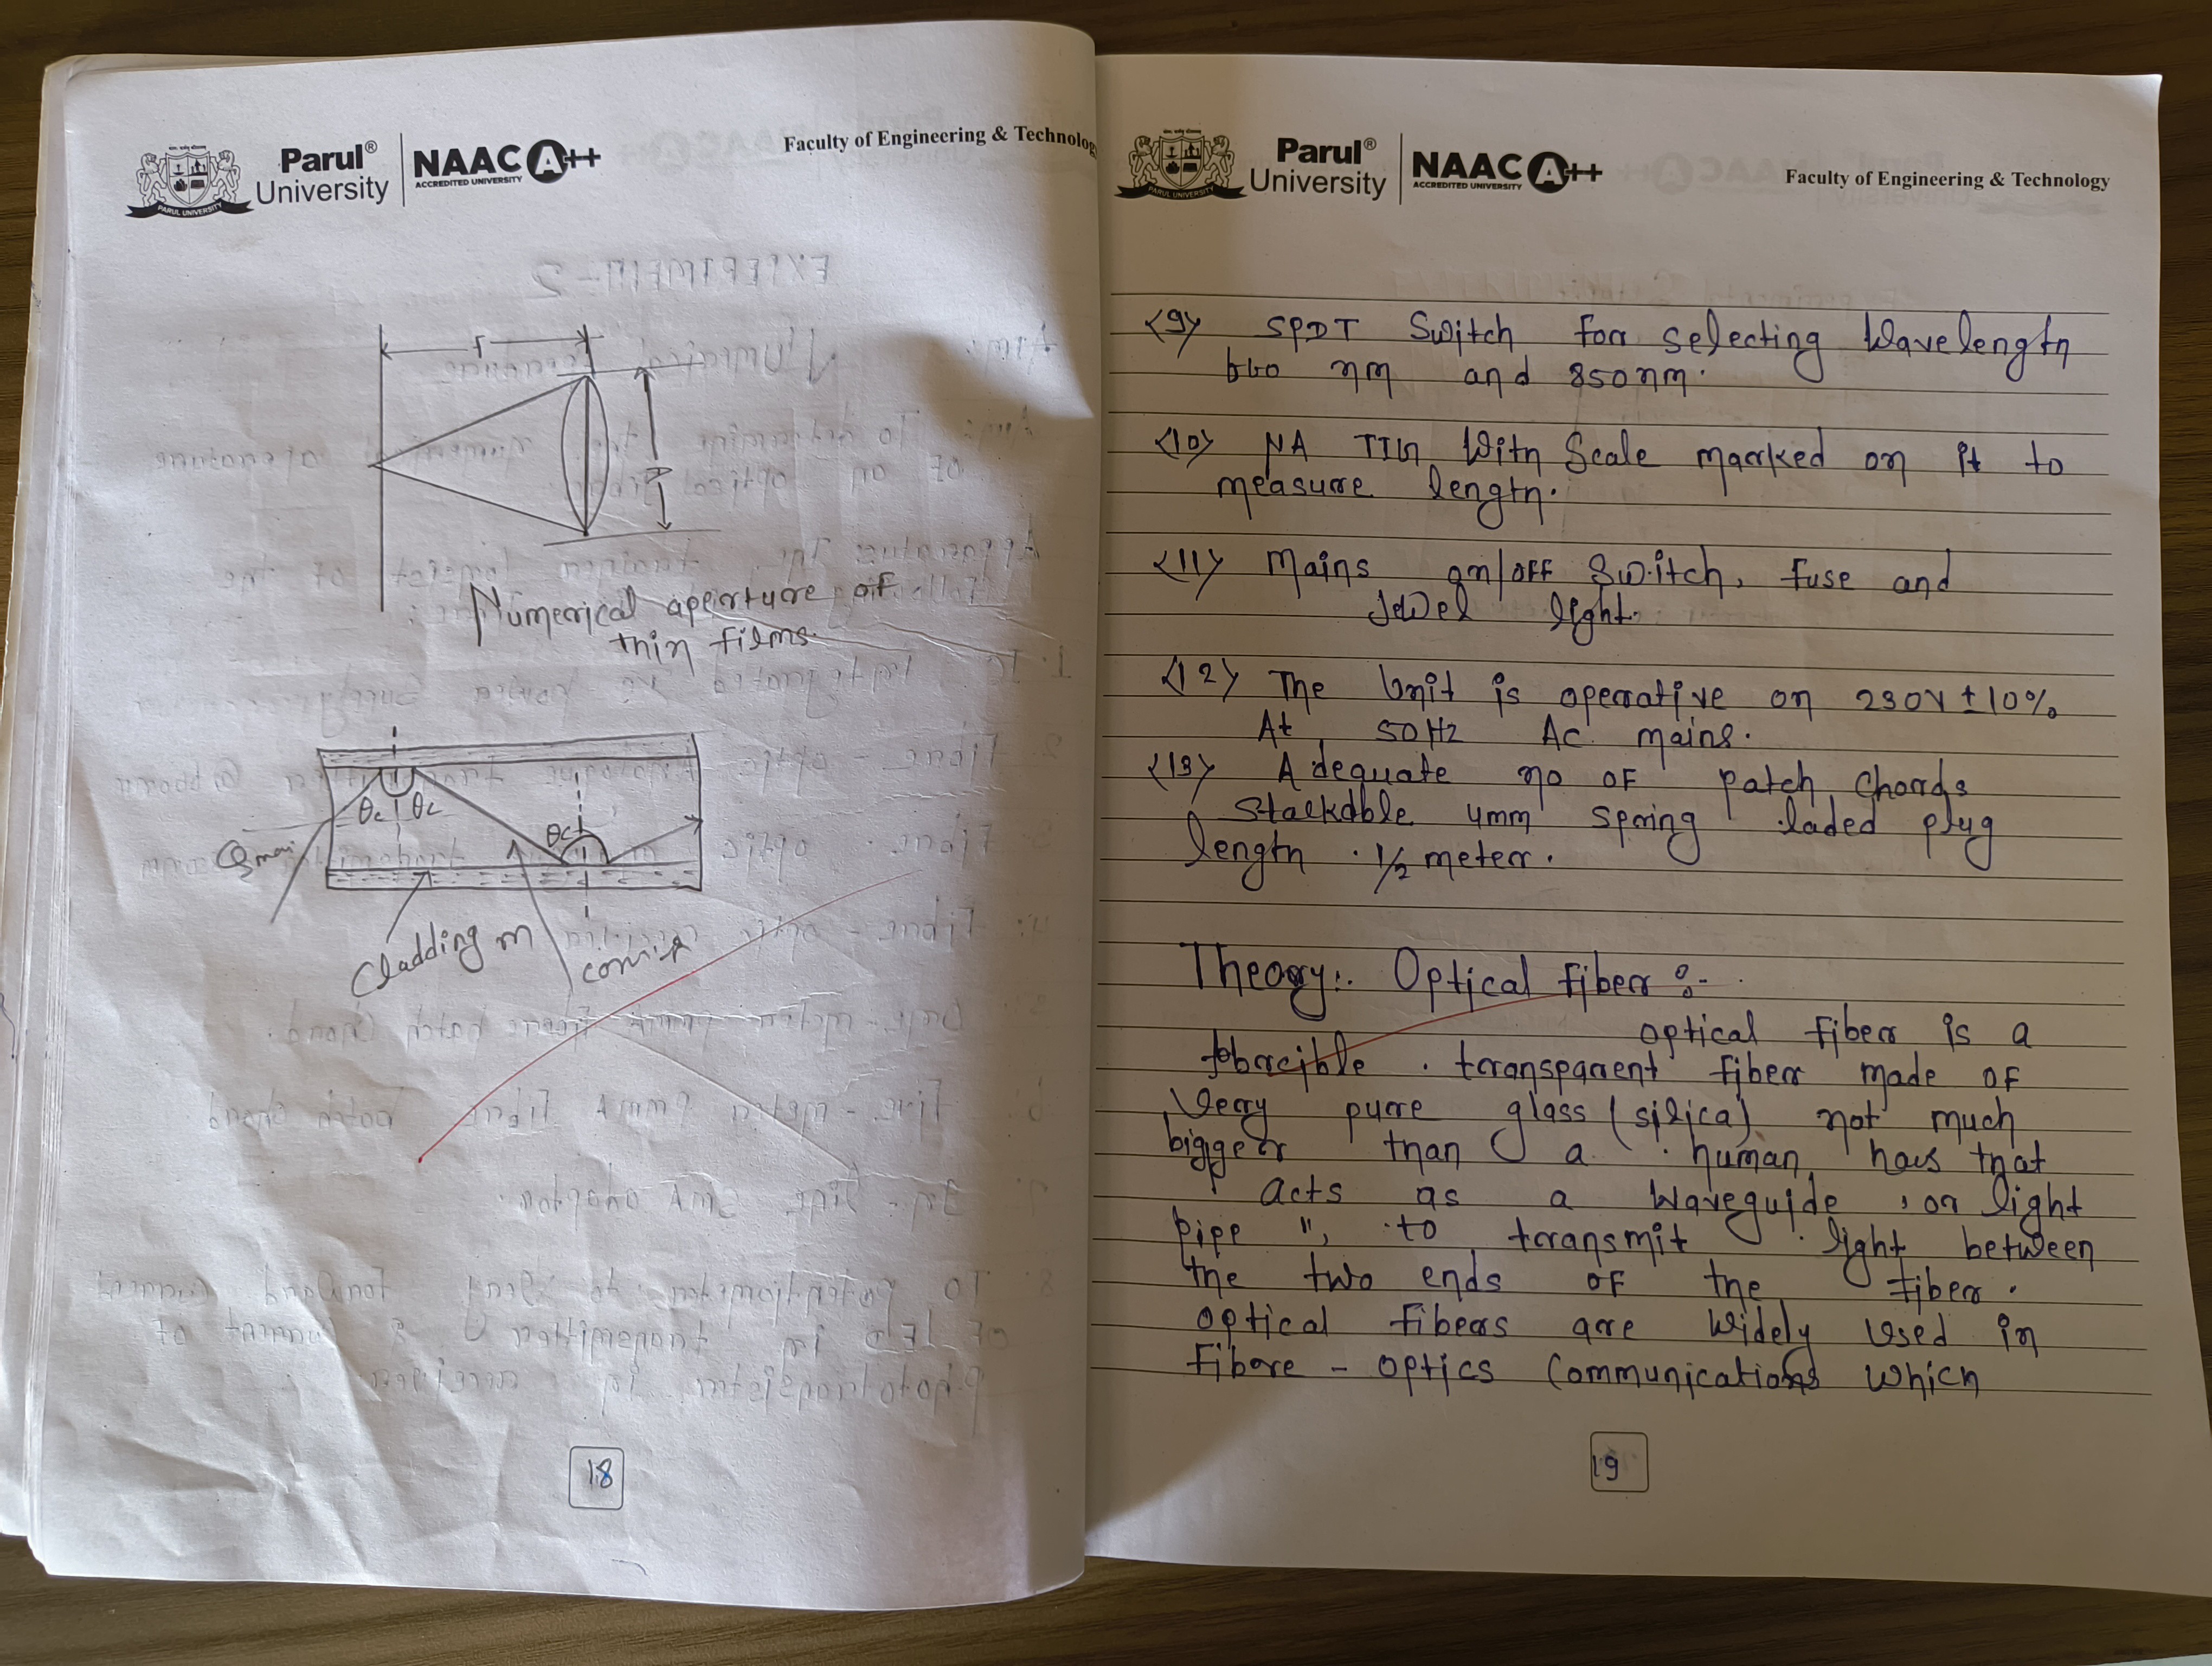 Parul® University
NAAC A++
ACCREDITED UNIVERSITY
PARUL UNIVERSITY
Faculty of Engineering & Technology
r
Numerical aperture of
thin films.
θc θc
θc
Cladding m
18
Parul® University
NAAC A++
ACCREDITED UNIVERSITY
PARUL UNIVERSITY
Faculty of Engineering & Technology
<9> SPDT Switch for selecting Wavelength
660 nm and 850nm.
<10> NA With Scale marked on it to
measure length.
<11> Mains on/off Switch, fuse and
Jewel light.
<12> The Unit is operative on 230V ± 10%
At 50Hz Ac mains.
<13> Adequate no of patch chords
stackable 4mm spring laded plug
length . 1/2 meter.
Theory:. Optical fiber :-
optical fiber is a
transparent fiber made of
Very pure glass (silica) not much
bigger than a human that
acts as a Waveguide , or light
pipe ", to transmit light between
the two ends of the fiber.
optical fibers are widely used in
Fibore - optics Communications which
19